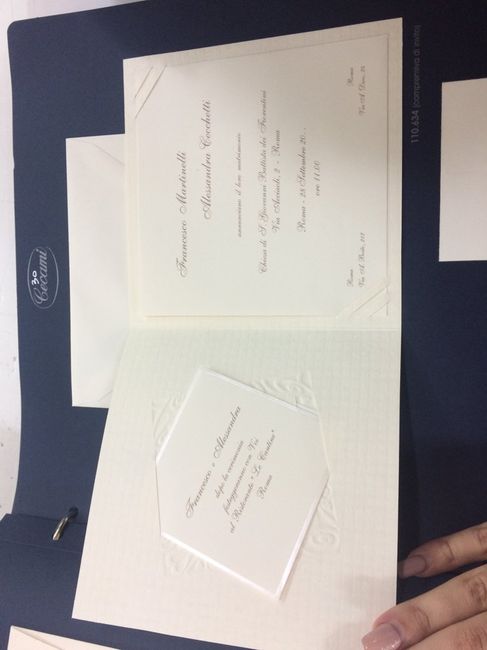 Francesco Martinelli
Alessandra Cecchetti
annunciano il loro matrimonio
Chiesa di S. Giovanni Battista dei Fiorentini
Via Acciaioli, 2 - Roma
Roma - 28 Settembre 20..
ore 11.00
Roma
Via A. Boito, 112
Roma
Via A. Doro, 25
Francesco e Alessandra
dopo la cerimonia
festeggeranno con Voi
al Ristorante "Le Cantine"
Roma
110.634 (comprensiva di invito)
Ceccami